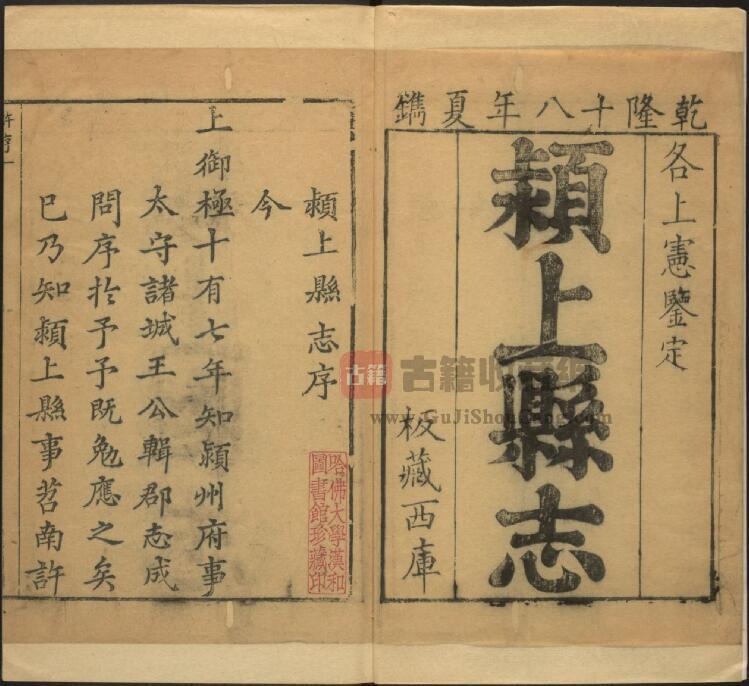 乾隆十八年夏鐫
各上憲鑒定
潁上縣志
板藏西庫
潁上縣志序
今
上御極十有七年知潁州府事
太守諸城王公輯郡志成
問序於予予既勉應之矣
已乃知潁上縣事苕南許
哈佛大學漢和
圖書館珍藏印
古籍
古籍收藏網
www.GuJiShouCang.com